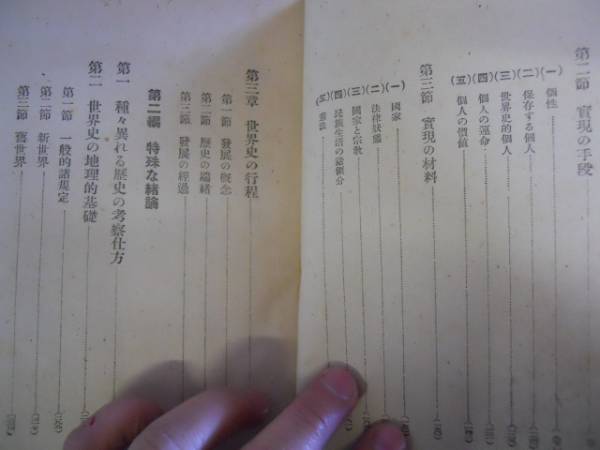 第二節 實現の手段
(一) 個性
(二) 保存する個人
(三) 世界史的個人
(四) 個人の運命
(五) 個人の價値
第三節 實現の材料
(一) 國家
(二) 法律狀態
(三) 國家と宗教
(四) 民族生活の諸領分
(五) 憲法
第三章 世界史の行程
第一節 發展の概念
第二節 歷史の端緒
第三節 發展の經過
第二編 特殊な緖論
第一 種々異れる歷史の考察仕方
第二 世界史の地理的基礎
第一節 一般的諸規定
第二節 新世界
第三節 舊世界